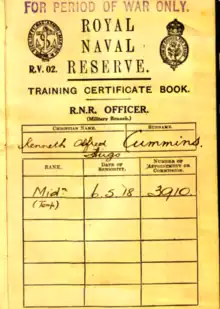 FOR PERIOD OF WAR ONLY.
ROYAL
NAVAL
R.V. 02.
RESERVE.
TRAINING CERTIFICATE BOOK.
R.N.R. OFFICER.
(Military Branch.)
CHRISTIAN NAME. SURNAME.
Kenneth Alfred Cummins.
Hugo
RANK. DATE OF SENIORITY. NUMBER OF APPOINTMENT OR COMMISSION.
Midn 6.5.18 3910
(Temp)